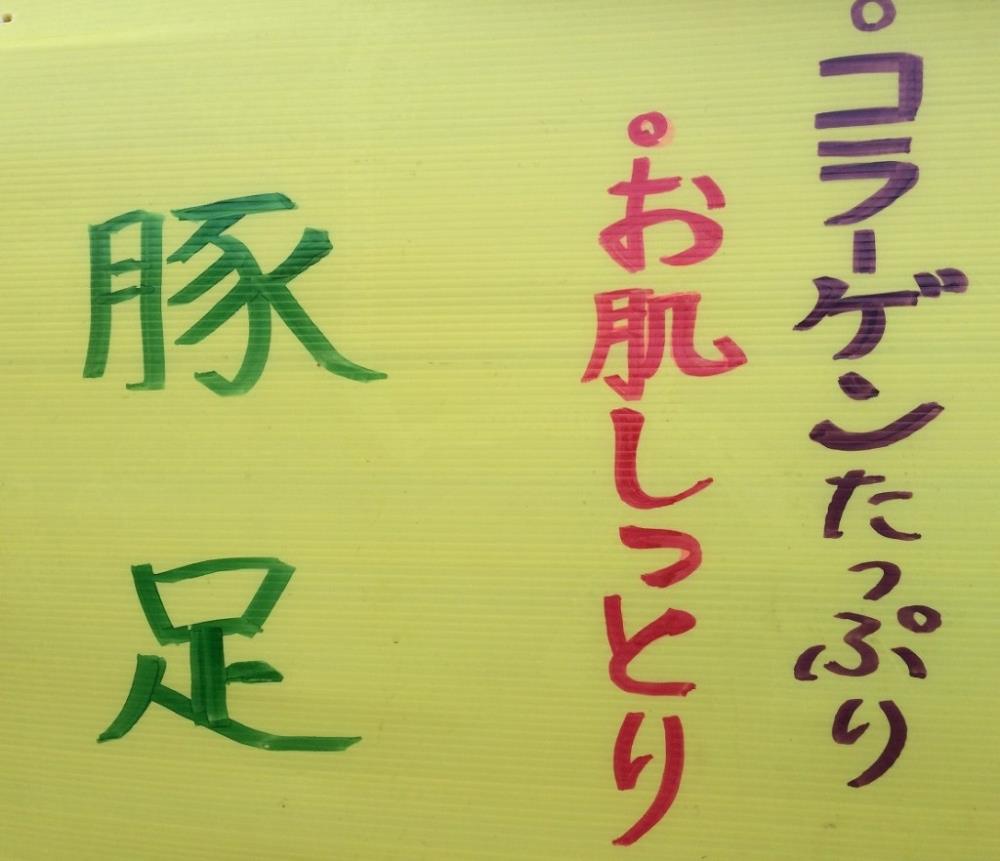 。コラーゲンたっぷり
。お肌しっとり
豚足